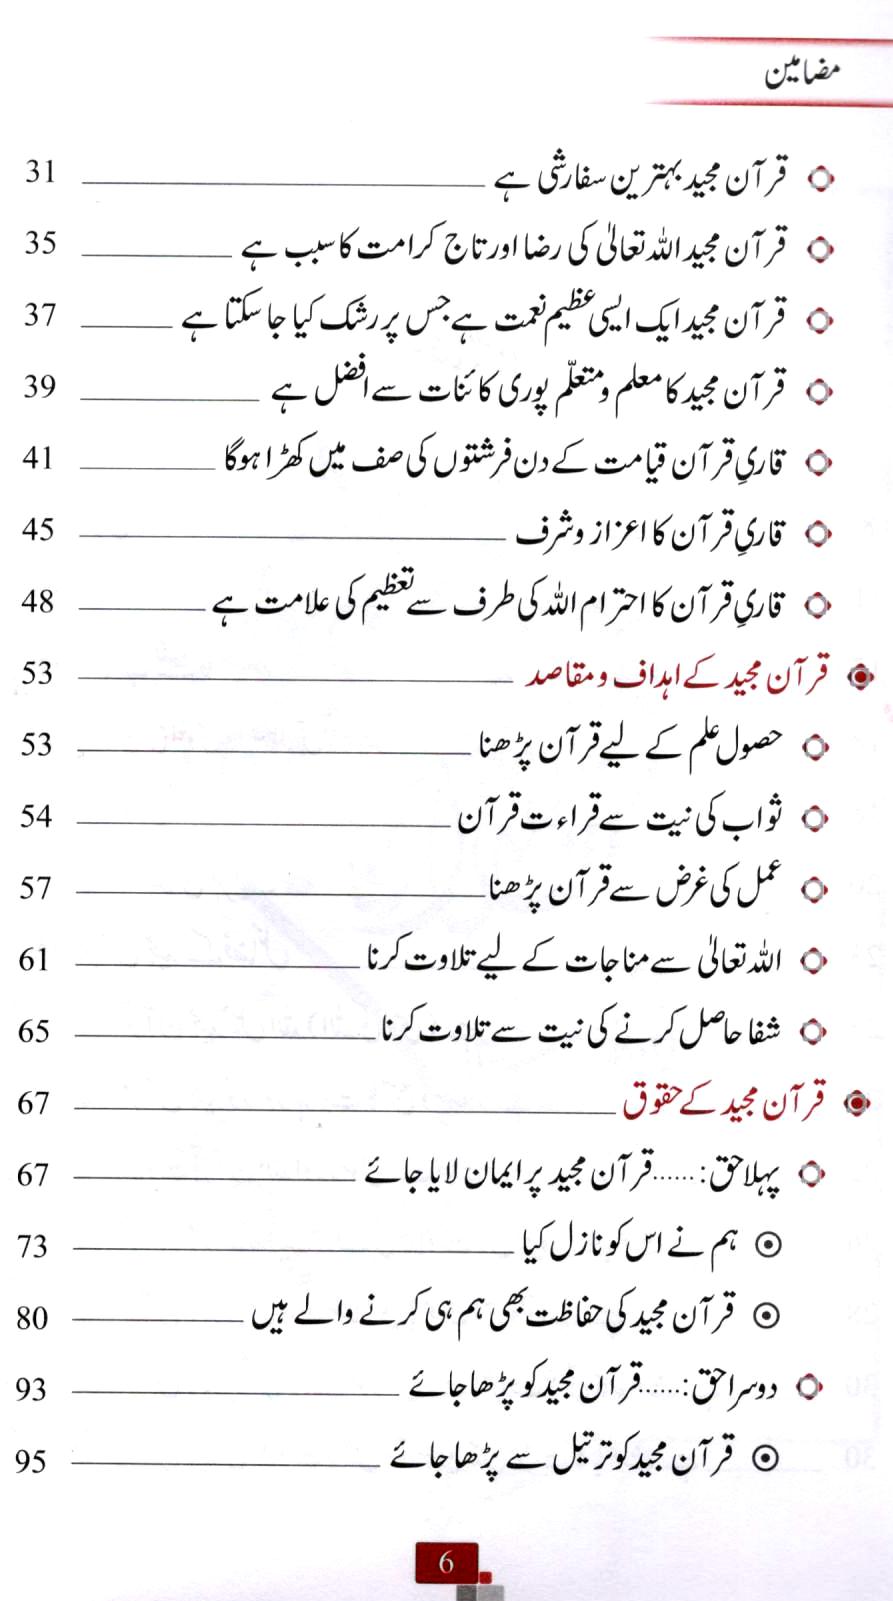 مضامین
قرآن مجید بہترین سفارشی ہے 31
قرآن مجید اللہ تعالیٰ کی رضا اور تاج کرامت کا سبب ہے 35
قرآن مجید ایک ایسی عظیم نعمت ہے جس پر رشک کیا جا سکتا ہے 37
قرآن مجید کا معلم و متعلّم پوری کائنات سے افضل ہے 39
قاریِ قرآن قیامت کے دن فرشتوں کی صف میں کھڑا ہوگا 41
قاریِ قرآن کا اعزاز و شرف 45
قاریِ قرآن کا احترام اللہ کی طرف سے تعظیم کی علامت ہے 48
قرآن مجید کے اہداف و مقاصد 53
حصول علم کے لیے قرآن پڑھنا 53
ثواب کی نیت سے قراءت قرآن 54
عمل کی غرض سے قرآن پڑھنا 57
اللہ تعالیٰ سے مناجات کے لیے تلاوت کرنا 61
شفا حاصل کرنے کی نیت سے تلاوت کرنا 65
قرآن مجید کے حقوق 67
پہلا حق:......قرآن مجید پر ایمان لایا جائے 67
ہم نے اس کو نازل کیا 73
قرآن مجید کی حفاظت بھی ہم ہی کرنے والے ہیں 80
دوسرا حق:......قرآن مجید کو پڑھا جائے 93
قرآن مجید کو ترتیل سے پڑھا جائے 95
6